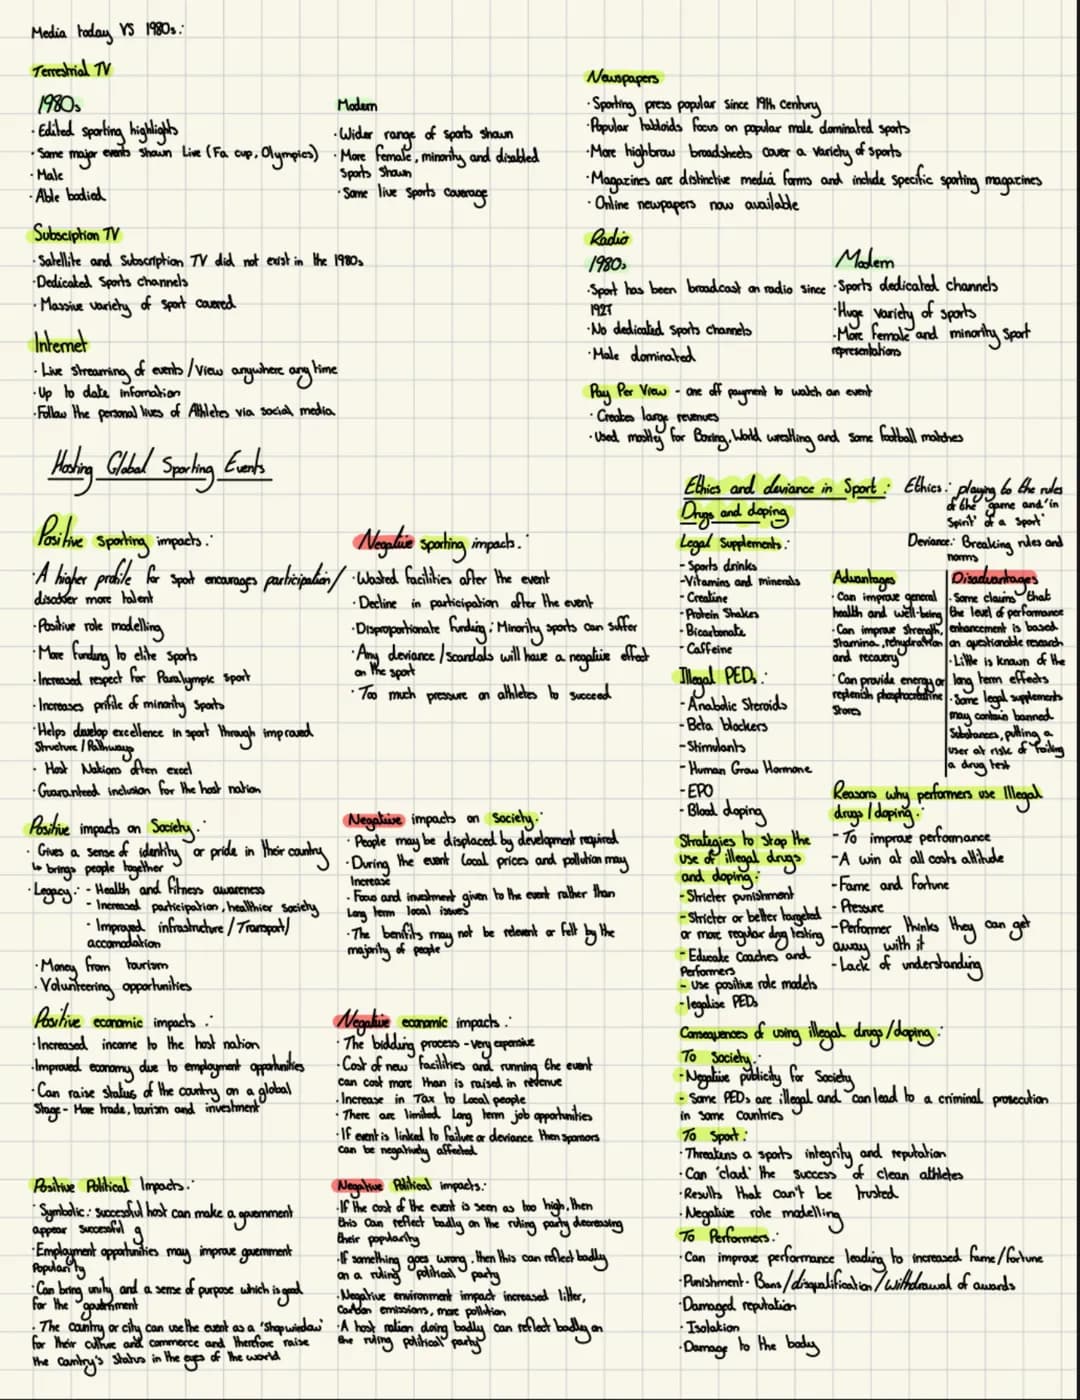 Media today VS 1980s:
Terrestrial TV
1980s
· Edited sporting highlights
· Some major events shown Live (Fa cup, Olympics)
· Male
· Able bodied
Modern
· Wider range of sports shown
· More female, minority and disabled
sports shown
· Some live sports coverage
Subsciption TV
· Satellite and Subscription TV did not exist in the 1980s
· Dedicated Sports channels
· Massive variety of sport covered
Internet
· Live streaming of events / View anywhere any time
· Up to date infomation
· Follow the personal lives of Athletes via social media
Newspapers
· Sporting press popular since 19th Century
· Popular tabloids focus on popular male dominated sports
· More highbrow broadsheets cover a variety of sports
· Magazines are distinctive media forms and include specific sporting magazines
· Online newspapers now available
Radio
1980s
· Sport has been broadcast on radio since
1927
· No dedicated sports channels
· Male dominated
Modern
· Sports dedicated channels
· Huge variety of sports
· More female and minority sport
representations
Pay Per View - one off payment to watch an event
· Creates large revenues
· Used mostly for Boxing, World wrestling and some football matches
Hosting Global Sporting Events
Positive sporting impacts:
· A higher profile for sport encourages participation /
discover more talent
· Positive role modelling
· More funding to elite sports
· Increased respect for Paralympic sport
· Increases prifile of minority sports
· Helps develop excellence in sport through improved
Structure / Pathways
· Host Nations often excel
· Guaranteed inclusion for the host nation
Negative sporting impacts:
· Wasted facilities after the event
· Decline in participation after the event
· Disproportionate funding: Minority sports can suffer
· Any deviance / scandals will have a negative effect
on the sport
· Too much pressure on athletes to succeed
Positive impacts on Society:
· Gives a sense of identity or pride in their country
↳ brings people together
· Legacy: - Health and fitness awareness
- Increased participation, healthier society
- Improved infrastructure / Transport /
accomodation
· Money from tourism
· Volunteering opportunities
Negative impacts on Society:
· People may be displaced by development required
· During the event local prices and pollution may
increase
· Focus and investment given to the event rather than
long term local issues
· The benifits may not be relevant or felt by the
majority of people
Positive economic impacts:
· Increased income to the host nation
· Improved economy due to employment opportunities
· Can raise status of the country on a global
Stage - More trade, tourism and investment
Negative economic impacts:
· The bidding process - very expensive
· Cost of new facilities and running the event
can cost more than is raised in revenue
· Increase in Tax to Local people
· There are limited Long term job opportunities
· If event is linked to failure or deviance then sponsors
can be negatively affected
Positive Political Impacts:
· Symbolic: successful host can make a government
appear successful g
· Employment opportunities may improve government
Popularity
· Can bring unity and a sense of purpose which is good
for the government
· The country or city can use the event as a 'shop window'
for their culture and commerce and therefore raise
the country's status in the eyes of the world
Negative Political impacts:
· If the cost of the event is seen as too high, then
this can reflect badly on the ruling party decreasing
their popularity
· If something goes wrong, then this can reflect badly
on a ruling political party
· Negative environment impact increased litter,
carbon emissions, more pollution
· A host nation doing badly can reflect badly on
the ruling political party
Ethics and deviance in Sport:
Drugs and doping
Ethics: playing to the rules
of the game and 'in
spirit' of a sport'
Deviance: Breaking rules and
norms
Legal Supplements:
- Sports drinks
- Vitamins and minerals
- Creatine
- Protein Shakes
- Bicarbonate
- Caffeine
Advantages
· Can improve general
health and well-being
· Can improve Strength,
Stamina, rehydration
and recovery
· Can provide energy or
replenish phosphocreatine
Stores
Disadvantages
· Some claims that
the level of performance
enhancement is based
on questionable research
· Little is known of the
long term effects
· Some legal supplements
may contain banned
Substances, putting a
user at risk of failing
a drug test
Illegal PEDs:
- Anabolic Steroids
- Beta blockers
- Stimulants
- Human Grow Hormone
- EPO
- Blood doping
Reasons why performers use Illegal
drugs / doping:
- To improve performance
- A win at all costs attitude
- Fame and fortune
- Pressure
- Performer thinks they can get
away with it
- Lack of understanding
Strategies to stop the
use of illegal drugs
and doping:
- Stricter punishment
- Stricter or better targeted
or more regular drug testing
- Educate Coaches and
Performers
- Use positive role models
- legalise PEDs
Consequences of using illegal drugs / doping:
To Society:
- Negative publicity for Society
- Some PEDs are illegal and can lead to a criminal prosecution
in some countries
To Sport:
· Threatens a sports integrity and reputation
· Can 'cloud' the success of clean athletes
· Results that can't be trusted
· Negative role modelling
To Performers:
· Can improve performance leading to increased fame / fortune
· Punishment - Bans / disqualification / withdrawal of awards
· Damaged reputation
· Isolation
· Damage to the body